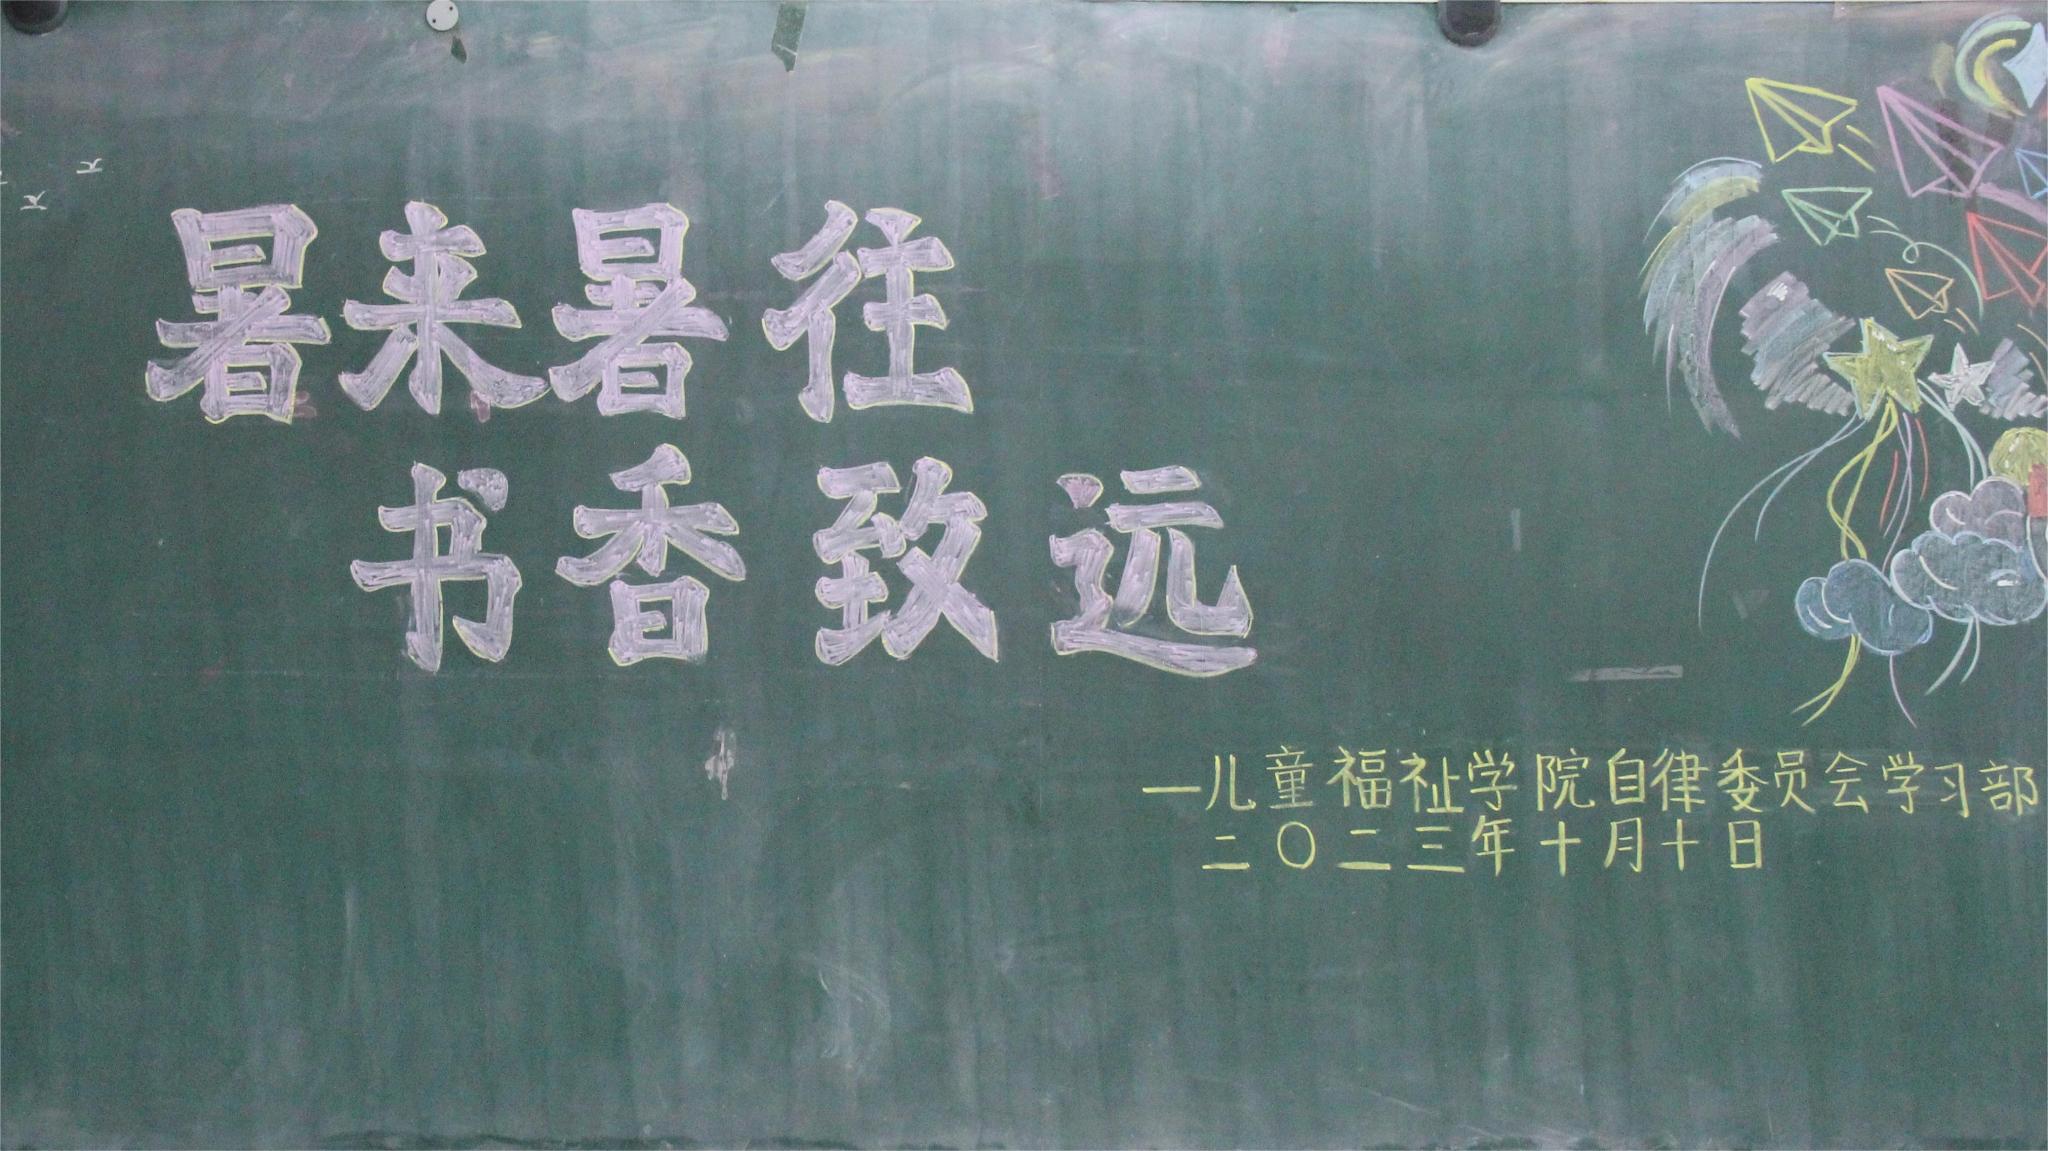 暑来暑往
书香致远
—儿童福祉学院自律委员会学习部
二〇二三年十月十日